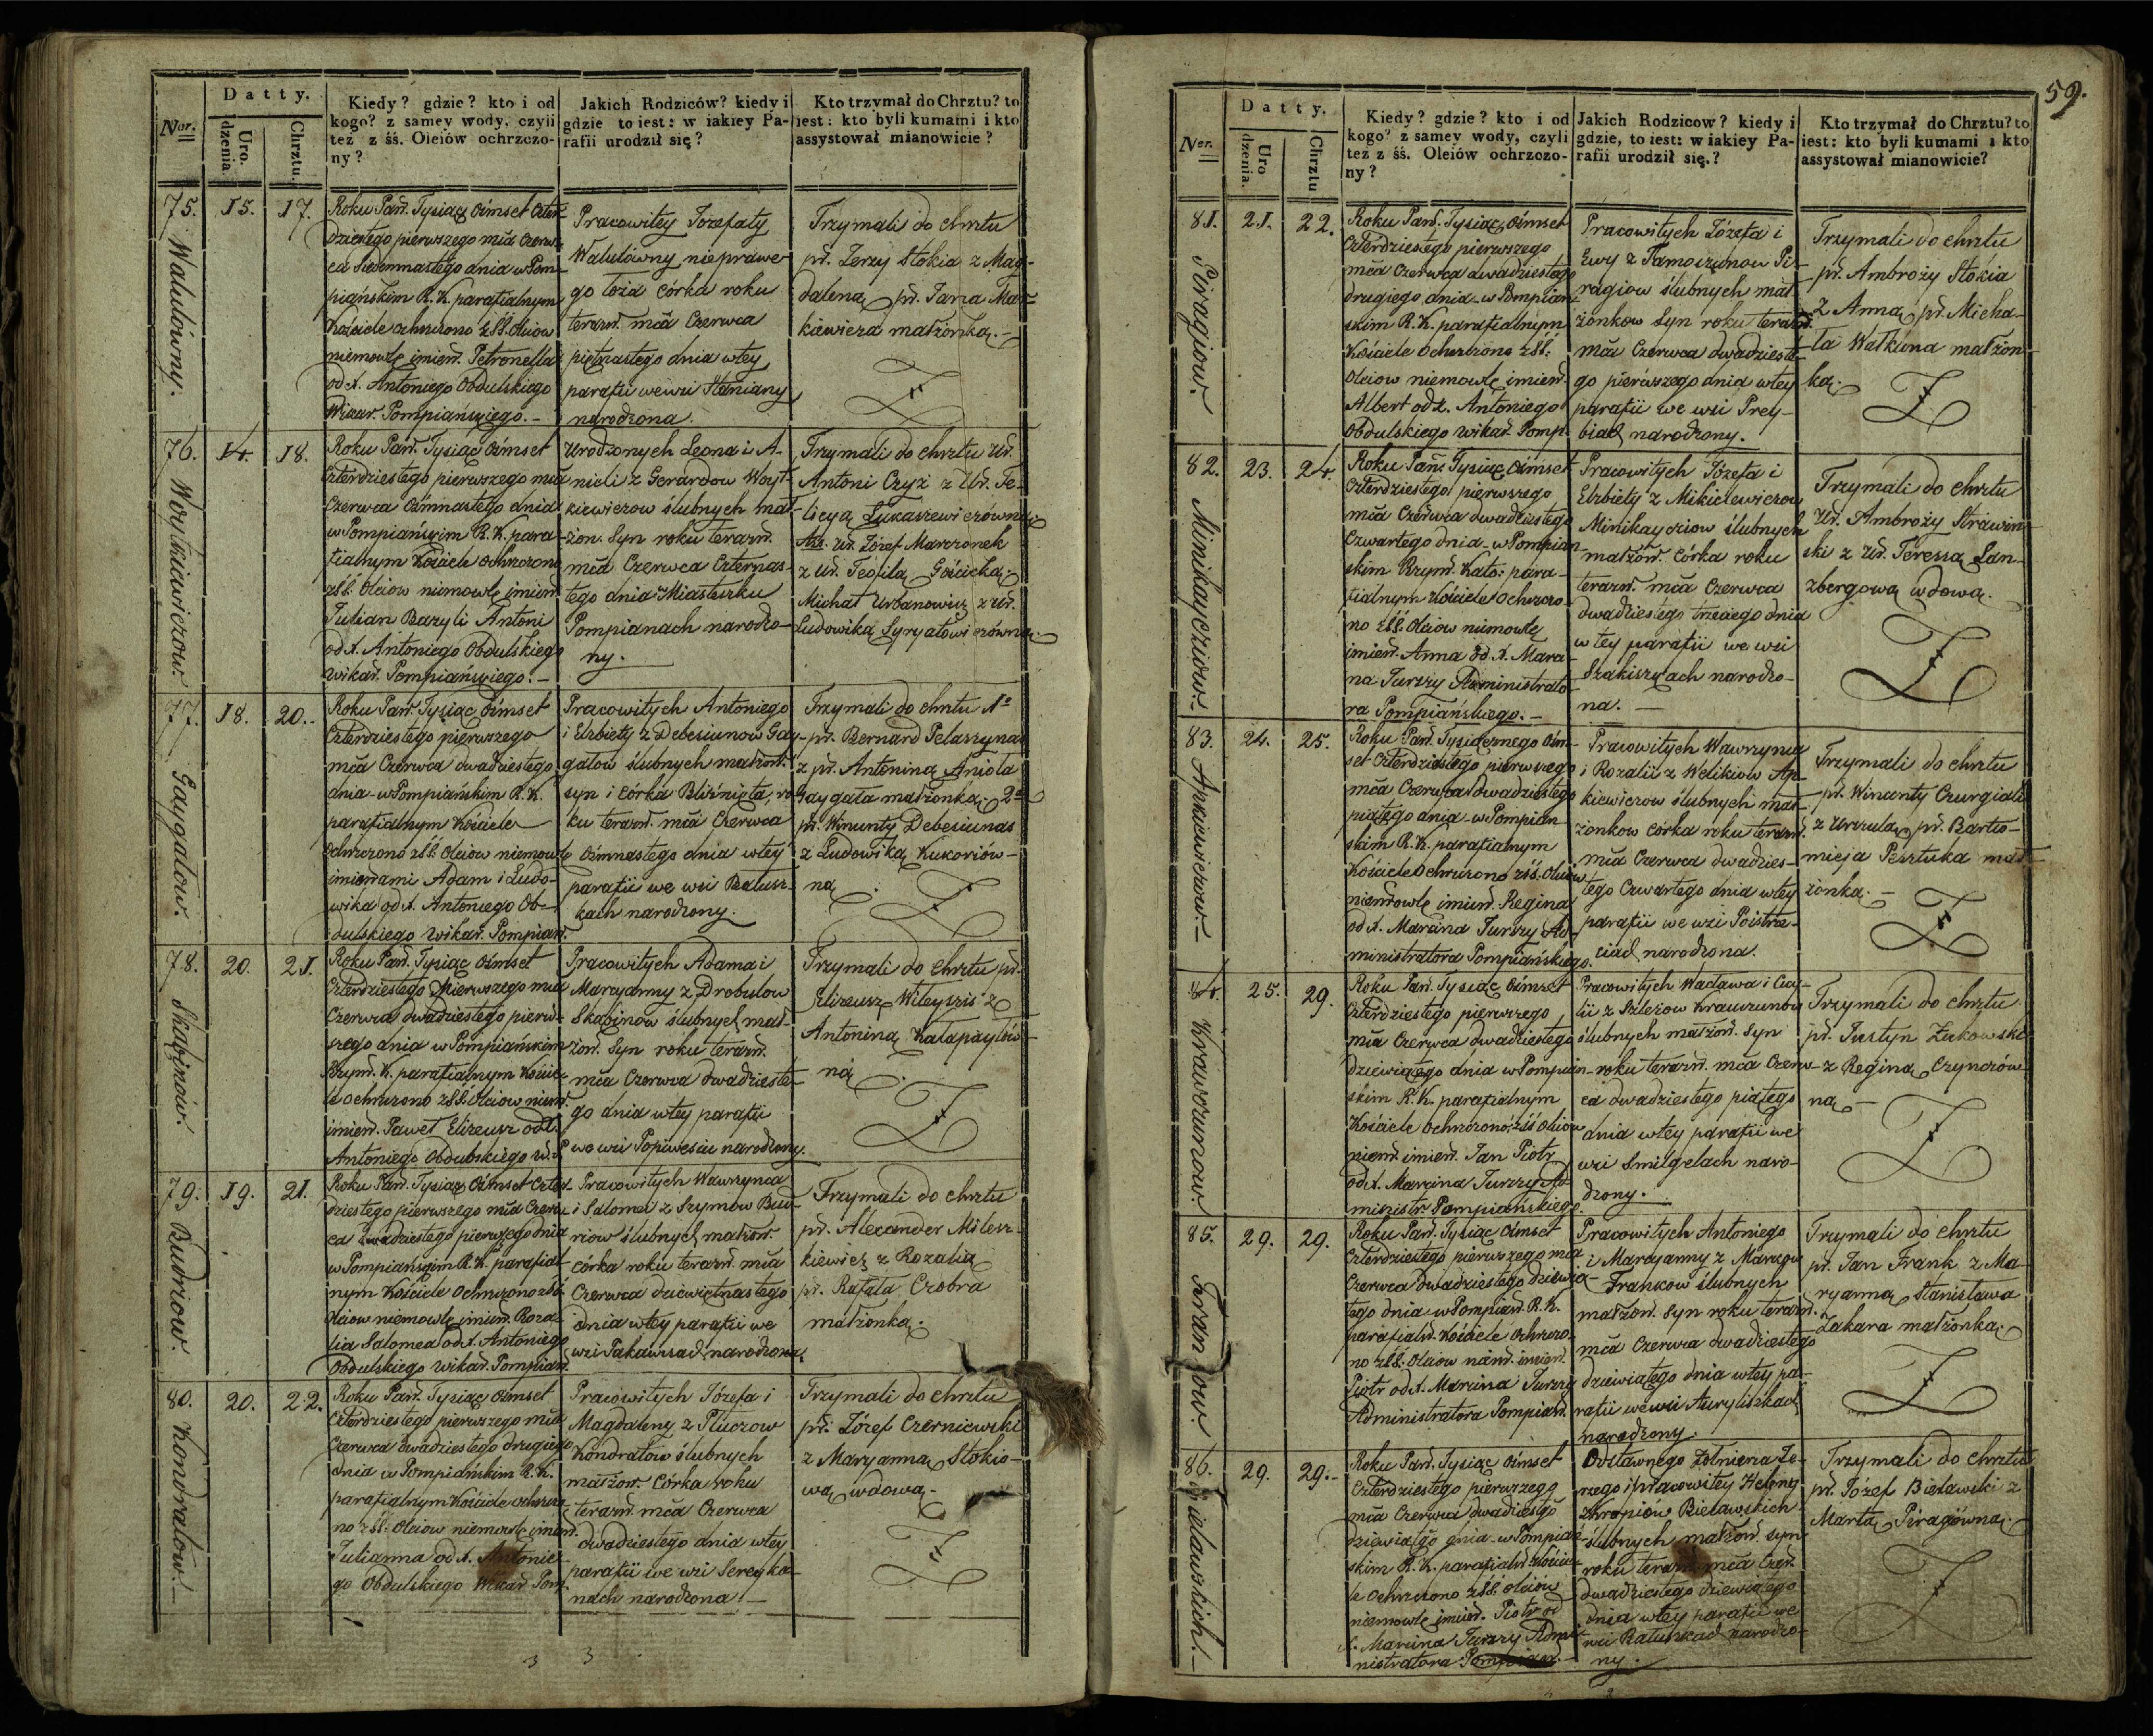 Datty.
Ner.
Uro.
dzenia.
Chrztu.
Kiedy? gdzie? kto i od
kogo? z samey wody, czyli
też z śś. Oleiów ochrzczo-
ny?
Jakich Rodziców? kiedy i
gdzie to iest: w iakiey Pa-
rafii urodził się?
Kto trzymał do Chrztu? to
iest: kto byli kumami i kto
assystował mianowicie?
75.
Walulówny.
15.
17.
Roku Pań. Tysiąc Ośmset Czter-
dziestego pierwszego mca Czerw-
ca Siedemnastego dnia w Pom-
piańskim R. K. parafialnym
Kościele ochrzczono z SS. Oleiow
niemowlę imien. Petronella
od X. Antoniego Obdulskiego
Wikar. Pompiańskiego.-
Pracowitey Jozefaty
Walulówny nieprawe-
go łoża Córka roku
terazń. mca Czerwca
piętnastego dnia w tey
parafii we wsi Staniany
narodzona.
Trzymali do chrztu
pr. Jerzy Stokia z Mag-
daleną pr. Jana Mac-
kiewicza małżonką.-
76.
Woytkiewiczow.
14.
18.
Roku Pań. Tysiąc Ośmset
Czterdziestego pierwszego mca
Czerwca Ośmnastego dnia
w Pompiańskim R. K. para-
fialnym Kościele ochrzczono
z SS. Oleiow niemowlę imien.
Julian Bazyli Antoni
od X. Antoniego Obdulskiego
wikar. Pompiańskiego.-
Urodzonych Leona i A-
nieli z Gerardow Woyt-
kiewiczow ślubnych mał-
żon. Syn roku terazń.
mca Czerwca Czternas-
tego dnia Miasteczku
Pompianach narodzo-
ny.
Trzymali do chrztu Ur.
Antoni Czyż z Ur. Fe-
licyą Łukaszewiczówną
Ass. Ur. Józef Marczonek
z Ur. Teofilą Gościcką
Michał Urbanowicz z Ur.
Ludowiką Syryatowiczówną.
77.
Gaygałow.
18.
20.-
Roku Pań. Tysiąc Ośmset
Czterdziestego pierwszego
mca Czerwca dwadziestego
dnia w Pompiańskim R. K.
parafialnym Kościele
Ochrzczono z SS. Oleiow niemowlę
imionami Adam i Ludo-
wika od X. Antoniego Ob-
dulskiego wikar. Pompian.
Pracowitych Antoniego
i Elzbiety z Debesiunow Gay-
gałow ślubnych małżon.
syn i córka Bliźnięta, ro-
ku terazń. mca Czerwca
Ośmnastego dnia w tey
parafii we wsi Balusz-
kach narodzony.
Trzymali do chrztu 1o
pr. Bernard Pelaszynas
z pr. Antoniną Anioła
Gaygała małżonką. 2o
pr. Wincenty Debesiunas
z Ludowiką Kukoriów-
ną
78.
Skabinów.
20.
21.
Roku Pań. Tysiąc Ośmset
Czterdziestego Pierwszego mca
Czerwca dwadziestego pierw-
szego dnia w Pompiańskim
Rzym. K. parafialnym Koście-
le ochrzczono z SS. Oleiow niem.
imien. Paweł Elizeusz od X.
Antoniego Obdulskiego W. P.
Pracowitych Adama i
Maryanny z Drobulow
Skabinow ślubnych mał-
żon. Syn roku terazń.
mca Czerwca dwadzieste-
go dnia w tey parafii
we wsi Popiwesiu narodzony.
Trzymali do chrztu pr.
Elizeusz Wileyszis z
Antoniną Katapaytów-
ną
79.
Budriow.
19.
21.
Roku Pań. Tysiąc Ośmset Czter-
dziestego pierwszego mca Czerw-
ca dwadziestego pierwszego dnia
w Pompiańskim R. K. parafial-
nym Kościele Ochrzczono z SS.
Oleiow niemowlę imien. Roza-
lia Salomea od X. Antoniego
Obdulskiego wikar. Pompian.
Pracowitych Wawrzynca
i Salomei z Szymow Bud-
riow ślubnych małżon.
córka roku terazń. mca
Czerwca dziewiętnastego
dnia w tey parafii we
wsi Pakawsiach narodzona.
Trzymali do chrztu
pr. Alexander Milesz-
kiewicz z Rozalią
pr. Rafała Czobra
małżonką.
80.
Kondratów.-
20.
22.
Roku Pań. Tysiąc Ośmset
Czterdziestego pierwszego mca
Czerwca dwadziestego drugiego
dnia w Pompiańskim R. K.
parafialnym Kościele ochrzczo-
no z SS. Oleiow niemowlę imien.
Julianna od X. Antonie-
go Obdulskiego Wikar. Pom.
Pracowitych Józefa i
Magdaleny z Pluczow
Kondratow ślubnych
małżon. Córka roku
terazń. mca Czerwca
dwadziestego dnia w tey
parafii we wsi Sereyka-
nach narodzona.-
Trzymali do chrztu
pr. Józef Czerniewski
z Maryanną Stokio-
wą wdową.-
3 3
59.
Datty.
Ner.
Uro
dzenia.
Chrztu
Kiedy? gdzie? kto i od
kogo? z samey wody, czyli
też z śś. Oleiów ochrzczo-
ny?
Jakich Rodziców? kiedy i
gdzie, to iest: w iakiey Pa-
rafii urodził się.?
Kto trzymał do Chrztu? to
iest: kto byli kumami i kto
assystował mianowicie?
81.
Piragiow.
21.
22.
Roku Pań. Tysiąc Ośmset
Czterdziestego pierwszego
mca Czerwca dwadziestego
drugiego dnia w Pompian-
skim R. K. parafialnym
Kościele Ochrzczono z SS.
Oleiow niemowlę imien.
Albert od X. Antoniego
Obdulskiego wikar. Pomp.
Pracowitych Józefa i
Ewy z Tamoszunow Pi-
ragiow ślubnych mał-
żonkow Syn roku terazń.
mca Czerwca dwadzieste-
go pierwszego dnia w tey
parafii we wsi Prey-
biach narodzony.
Trzymali do chrztu
pr. Ambroży Stokia
z Anną pr. Micha-
ła Watkuna małżon-
ką.
82.
Minikayciow.
23.
24.
Roku Pań. Tysiąc Ośmset
Czterdziestego pierwszego
mca Czerwca dwadziestego
Czwartego dnia w Pompian-
skim Rzym. Kato: para-
fialnym Kościele Ochrzczo-
no z SS. Oleiow niemowlę
imien. Anna od X. Marci-
na Turzzy Administrato-
ra Pompiańskiego.-
Pracowitych Józefa i
Elzbiety z Mikielewiczow
Minikayciow ślubnych
małżon. Córka roku
terazń. mca Czerwca
dwadziestego trzeciego dnia
w tey parafii we wsi
Szakiszkach narodzo-
na.-
Trzymali do chrztu
Ur. Ambroży Strawin-
ski z Ur. Teressą Lan-
zbergową wdową.
83.
Apkiewiczow.-
24.
25.
Roku Pań. Tysiącznego Ośm-
set Czterdziestego pierwszego
mca Czerwca dwadziestego
piątego dnia w Pompian-
skim R. K. parafialnym
Kościele Ochrzczono z SS. Oleiow
niemowlę imien. Regina
od X. Marcina Turzzy Ad-
ministratora Pompiańskiego.
Pracowitych Wawrzynca
i Rozalii z Welikiow Ap-
kiewiczow ślubnych mał-
żonkow córka roku terazń.
mca Czerwca dwadzies-
tego Czwartego dnia w tey
parafii we wsi Poistra-
ciach narodzona.
Trzymali do chrztu
pr. Wincenty Czurgialis
z Urszulą pr. Bartło-
mieja Pesztuka mał-
żonką.-
84.
Krawczunow.
25.
29.
Roku Pań. Tysiąc Ośmset
Czterdziestego pierwszego
mca Czerwca dwadziestego
dziewiątego dnia w Pompian-
skim R. K. parafialnym
Kościele Ochrzczono z SS Oleiow
niem. imien. Jan Piotr
od X. Marcina Turzzy Ad-
ministr. Pompiańskiego.
Pracowitych Wacława i Cecy-
lii z Szlezow Krawczunow
ślubnych małżon. Syn
roku terazń. mca Czerw-
ca dwadziestego piątego
dnia w tey parafii we
wsi Smilgelach naro-
dzony.
Trzymali do chrztu
pr. Justyn Żukowski
z Reginą Czynczów-
ną.-
85.
Frankow.
29.
29.
Roku Pań. Tysiąc Ośmset
Czterdziestego pierwszego mca
Czerwca Dwadziestego dziewią-
tego dnia w Pompian. R. K.
parafialn. Kościele Ochrzczo-
no z SS. Oleiow niem. imien.
Piotr od X. Marcina Turzzy
Administratora Pompian.
Pracowitych Antoniego
i Maryanny z Maragow
Frankow ślubnych
małżon. Syn roku terazń.
mca Czerwca dwadziestego
dziewiątego dnia w tey pa-
rafii we wsi Auryliszkach
narodzony.
Trzymali do chrztu
pr. Jan Frank z Ma-
ryanną Stanisława
Zakara małżonką.
86.
Bielawskich.-
29.
29.-
Roku Pań. Tysiąc Ośmset
Czterdziestego pierwszego
mca Czerwca dwadziestego
dziewiątego dnia w Pompian-
skim R. K. parafialn. Koscie-
le Ochrzczono z SS. Oleiów
niemowlę imien. Piotr od
X. Marcina Turzzy Admi-
nistratora Pompian.-
Odstawnego Żołnierza Je-
rzego i pracowitey Heleny
z Kropiów Bielawskich
ślubnych małżon. syn
roku terazń. mca Czer.
dwadziestego dziewiątego
dnia w tey parafii we
wsi Baluszkach narodzo-
ny.
Trzymali do chrztu
pr. Józef Bielawski z
Martą Piragówną.